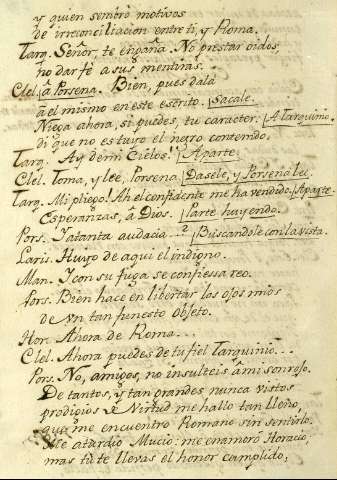 y quien sembrò motivos
de irreconciliacion entre ti, y Roma.
Tarq. Señor, te engaña. No prestar oidos,
no dar fè a sus mentiras.
Clel. à Porsena. Bien, pues dala
à el mismo en este escrito. Sacale.
Niega ahora, si puedes, tu caracter. A Tarquino.
di que no es tuyo el negro contenido.
Tarq. Ay de mi Cielos! Aparte.
Clel. Toma, y lee, Porsena. Dasele, y Porsena lee.
Tarq. Mi pliego! Ah el confidente me ha vendido. Aparte.
Esperanzas, à Dios. Parte huyendo.
Pors. Y a tanta audacia...? Buscandole con la vista.
Laris. Huyò de aqui el indigno.
Man. Y con su fuga se confiessa reo.
Pors. Bien hace en libertar los ojos mios
de un tan funesto objeto.
Hor. Ahora de Roma...
Clel. Ahora puedes de tu fiel Tarquinio...
Pors. No, amigos, no insulteis à mi sonrojo.
De tantos, y tan grandes nunca vistos
prodigios de Virtud me hallo tan lleno,
que me encuentro Romano sin sentirlo.
Me aturdiò Mucio: me enamorò Horacio:
mas tù te llevas el honor cumplido;